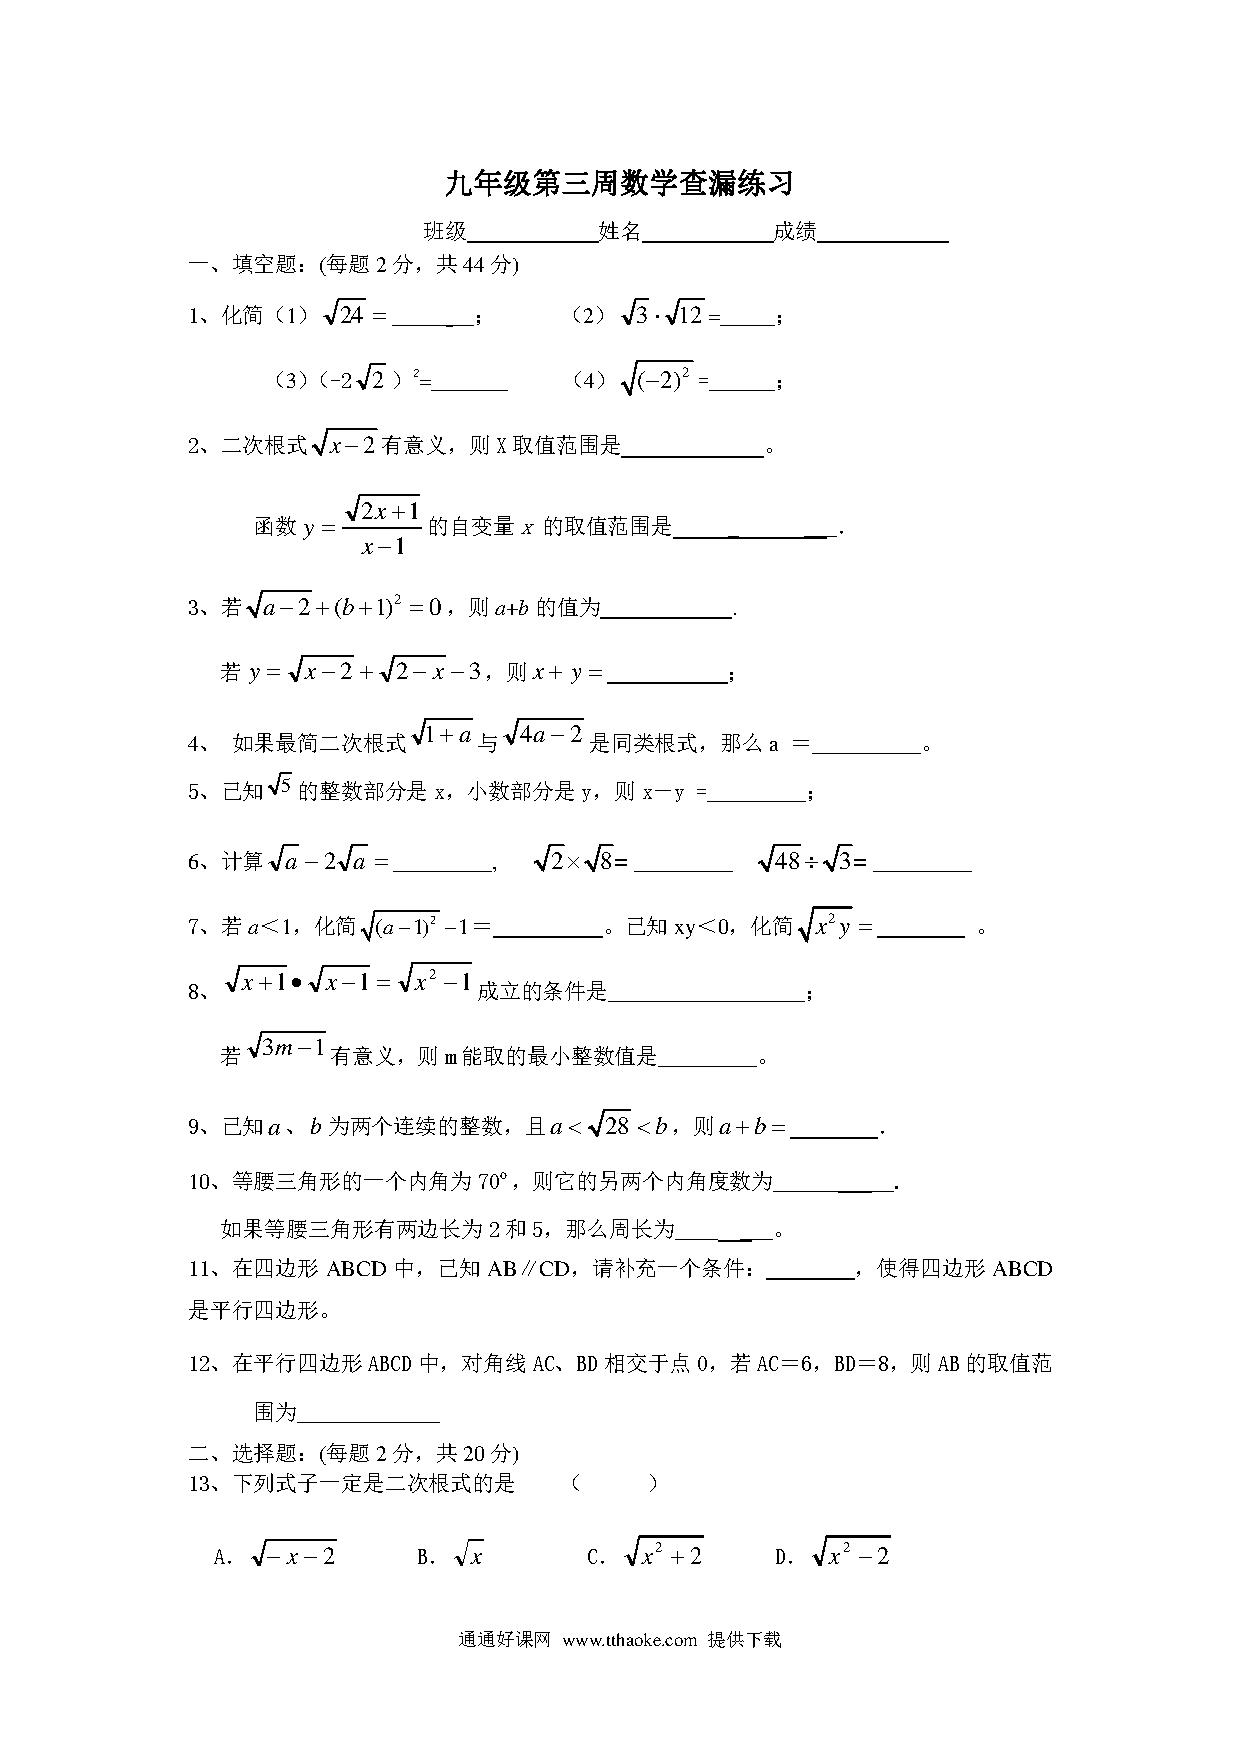 九年级第三周数学查漏练习
班级____________姓名____________成绩____________
一、填空题：(每题2分，共44分)
1、化简（1）√24 =________； （2）√3·√12 =_____；
（3）（-2√2）²=_______ （4）√(−2)² =______；
2、二次根式√x−2有意义，则X取值范围是_____________。
函数 y = √2x+1 / x−1 的自变量 x 的取值范围是_______________．
3、若√a−2+(b+1)² =0，则a+b的值为____________.
若 y = √x−2 + √2−x −3，则 x+y =___________；
4、 如果最简二次根式√1+a与√4a−2是同类根式，那么a ＝__________。
5、己知√5的整数部分是x，小数部分是y，则x－y =_________；
6、计算√a−2√a =_________, √2×√8=_________ √48÷√3=_________
7、若a＜1，化简√(a−1)² −1＝__________。已知xy＜0，化简√x²y =________ 。
8、√x+1•√x−1=√x²−1成立的条件是__________________；
若√3m−1有意义，则m能取的最小整数值是_________。
9、己知a、b为两个连续的整数，且a<√28<b，则a+b=________．
10、等腰三角形的一个内角为70°，则它的另两个内角度数为___________．
如果等腰三角形有两边长为2和5，那么周长为_________。
11、在四边形ABCD中，已知AB∥CD，请补充一个条件：________，使得四边形ABCD
是平行四边形。
12、在平行四边形ABCD中，对角线AC、BD相交于点O，若AC＝6，BD＝8，则AB的取值范
围为_____________
二、选择题：(每题2分，共20分)
13、下列式子一定是二次根式的是 （ ）
A．√−x−2 B．√x C．√x²+2 D．√x²−2
通通好课网 www.tthaoke.com 提供下载